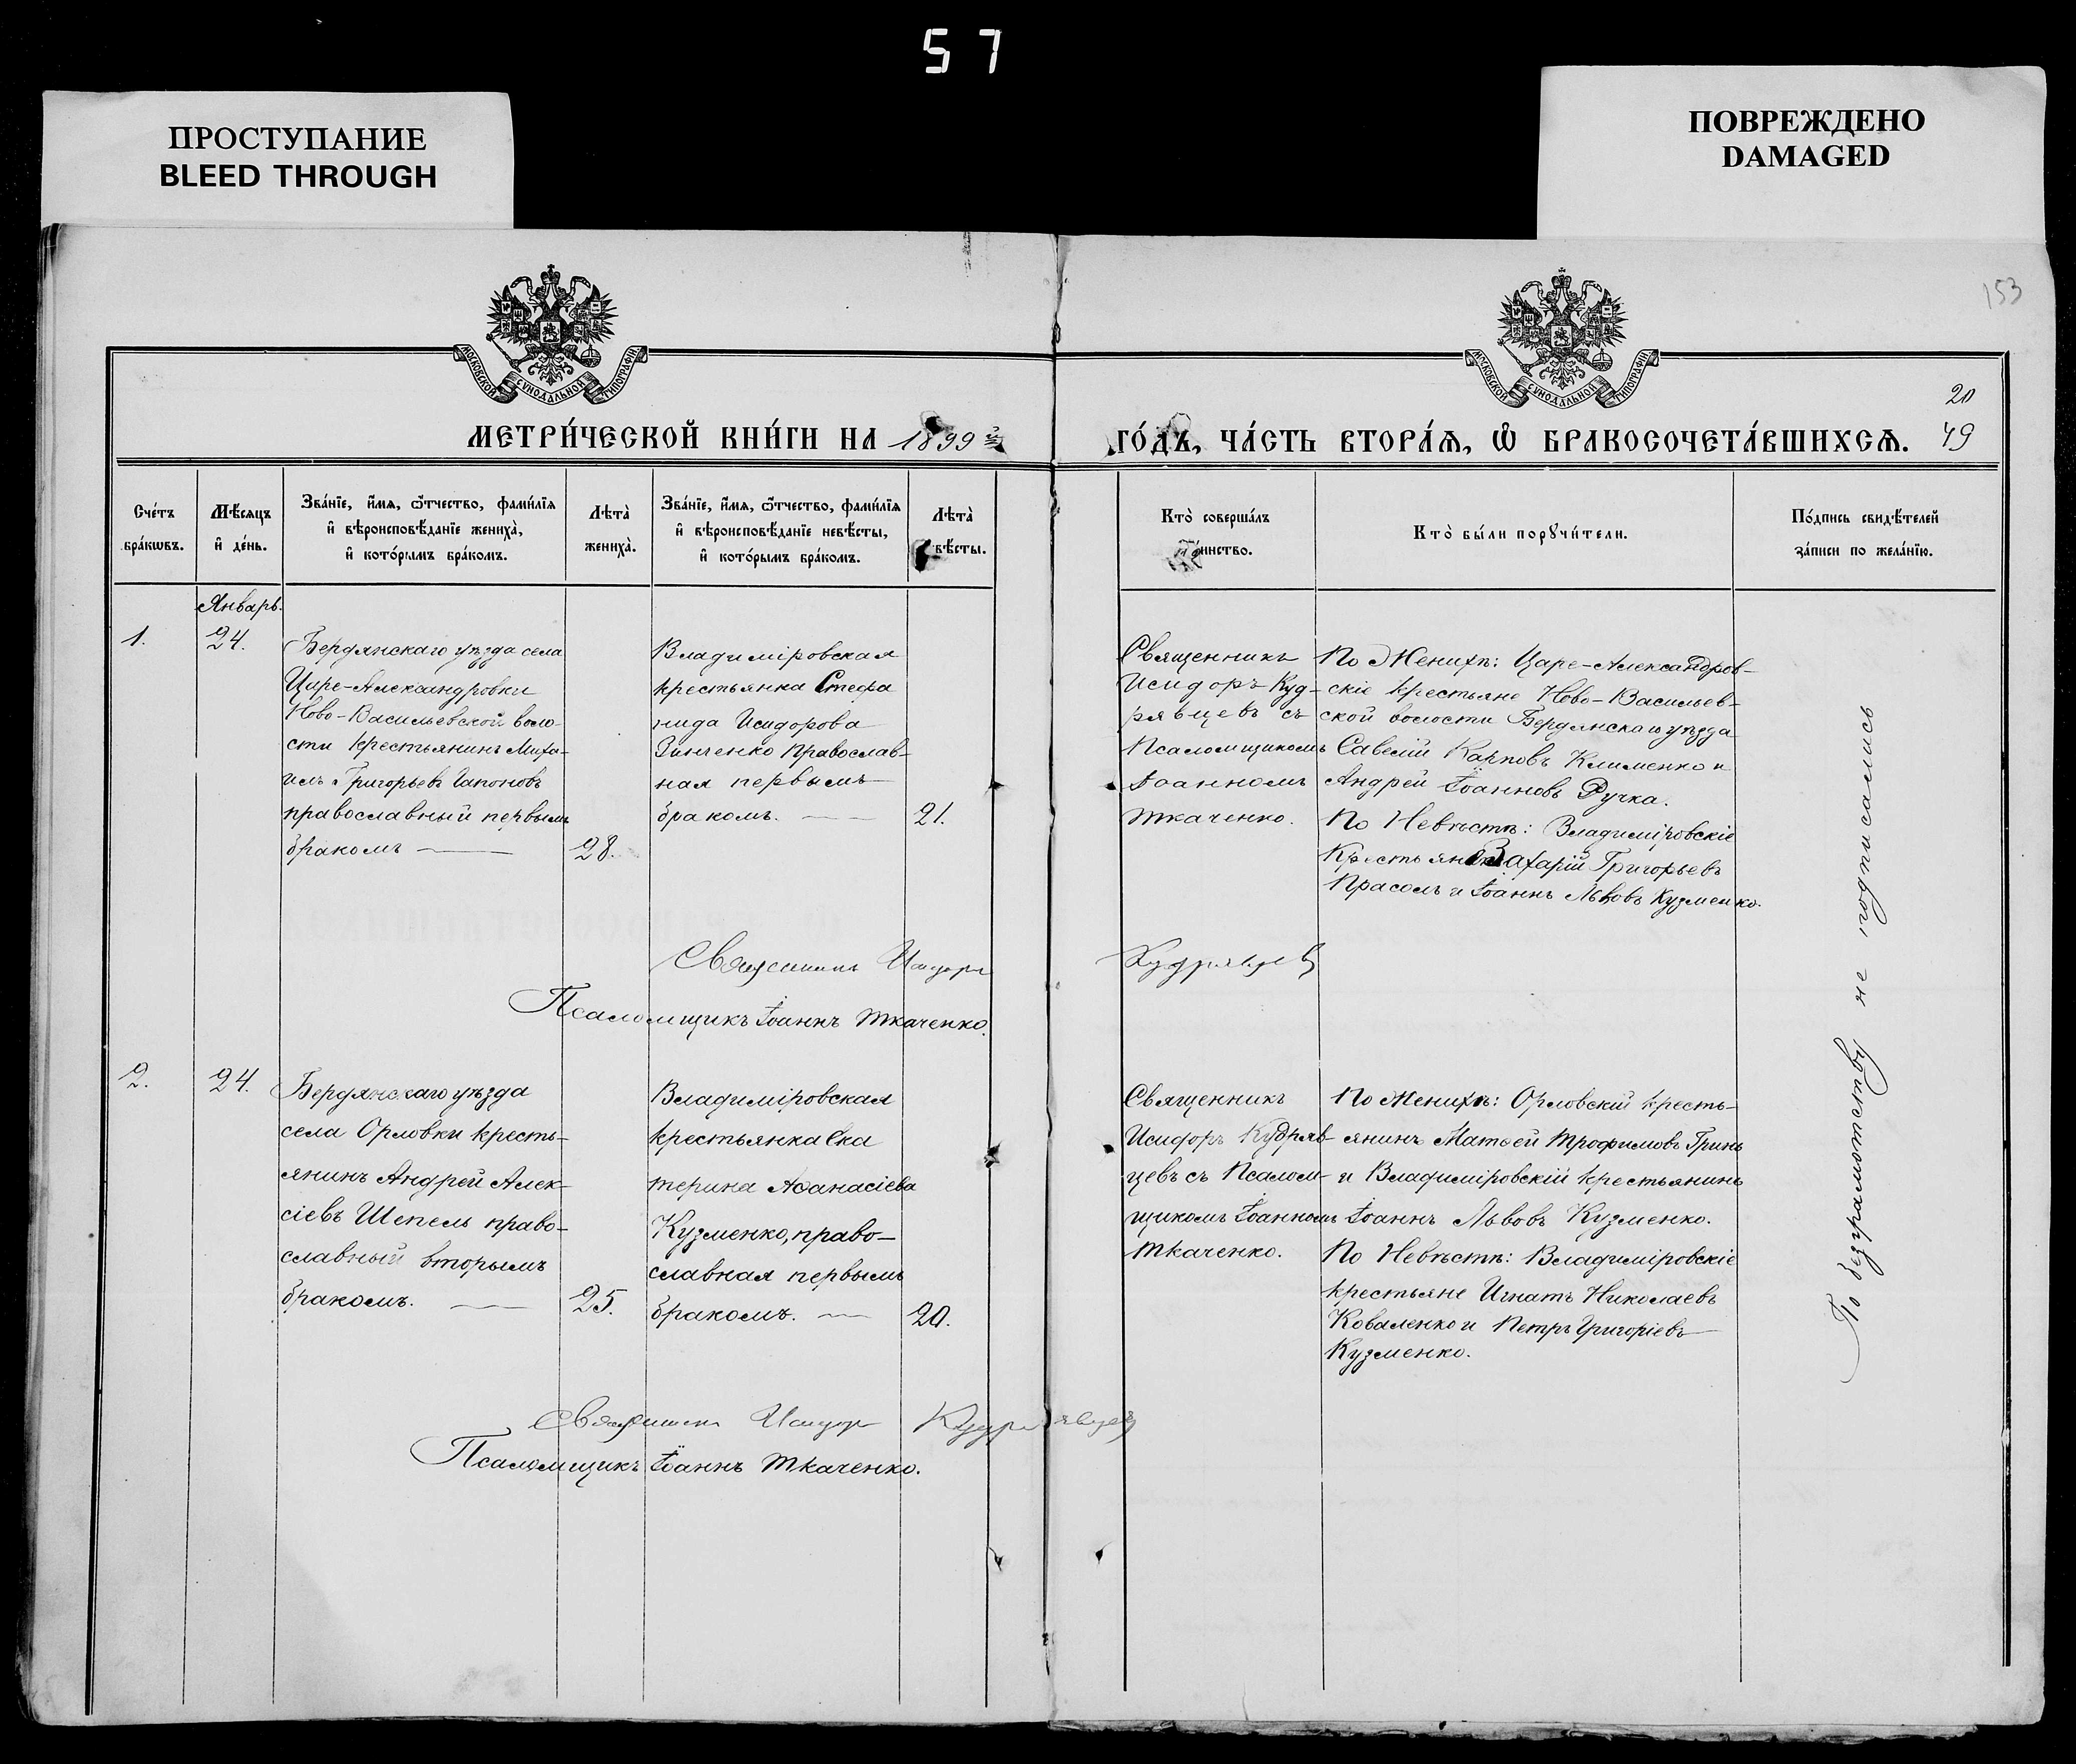 57
ПРОСТУПАНИЕ
BLEED THROUGH
ПОВРЕЖДЕНО
DAMAGED
153
МОСКОВСКОЙ СѴНОДАЛЬНОЙ ТИПОГРАФІИ
МОСКОВСКОЙ СѴНОДАЛЬНОЙ ТИПОГРАФІИ
20
МЕТРИ́ЧЕСКОЙ КНИ́ГИ НА 1899 й
ГО́ДЪ, ЧА́СТЬ ВТОРА́Я, Ѡ БРАКОСОЧЕТА́ВШИХСЯ. 49
Сче́тъ
бра́кѡвъ.
Мѣ́сяцъ
и҆ де́нь.
Зва́нїе, и҆́мя, ѻ҆́тчество, фами́лїя
и҆ вѣроисповѣ́данїе жениха̀,
и҆ кото́рымъ бра́комъ.
Лѣта̀
жениха̀.
Зва́нїе, и҆́мя, ѻ҆́тчество, фами́лїя
и҆ вѣроисповѣ́данїе невѣ́сты,
и҆ кото́рымъ бра́комъ.
Лѣта̀
вѣ́сты.
Кто̀ соверша́лъ
инство.
Кто̀ бы́ли порꙋчи́тели.
По́дпись свидѣ́телей
за́писи по жела́нїю.
Январь.
1.
24.
Бердянскаго уѣзда села
Царе-Александровки
Ново-Васильевской воло-
сти крестьянинъ Миха-
илъ Григорьевъ Гапоновъ
православный первымъ
бракомъ
28.
Владиміровская
крестьянка Стефа
нида Исидорова
Зинченко православ-
ная первымъ
бракомъ.
21.
Священникъ
Исидоръ Куд-
рявцевъ съ
Псаломщикомъ
Іоанномъ
Ткаченко.
По Женихѣ: Царе-Александров-
скіе крестьяне Ново-Васильев-
ской волости Бердянскаго уѣзда
Савелій Карповъ Клименко и
Андрей Іоанновъ Ручка.
По Невѣстѣ: Владиміровскіе
Крестьяне Захарій Григорьевъ
Прасолъ и Іоаннъ Львовъ Кузменко.
Священникъ Исидоръ Кудрявцевъ
Псаломщикъ Іоаннъ Ткаченко.
2.
24.
Бердянскаго уѣзда
села Орловки кресть-
янинъ Андрей Алек-
сіевъ Шепель право-
славный вторымъ
бракомъ.
25.
Владиміровская
крестьянка Ека
терина Аѳанасіева
Кузменко, право-
славная первымъ
бракомъ.
20.
Священникъ
Исидоръ Кудряв-
цевъ съ Псалом-
щикомъ Іоанномъ
Ткаченко.
По Женихѣ: Орловскій кресть-
янинъ Матѳей Трофимовъ Гринь
и Владиміровскій крестьянинъ
Іоаннъ Львовъ Кузменко.
По Невѣстѣ: Владиміровскіе
крестьяне Игнатъ Николаевъ
Коваленко и Петръ Григоріевъ
Кузменко.
По безграмотству не подписались
Священникъ Исидоръ Кудрявцевъ
Псаломщикъ Іоаннъ Ткаченко.